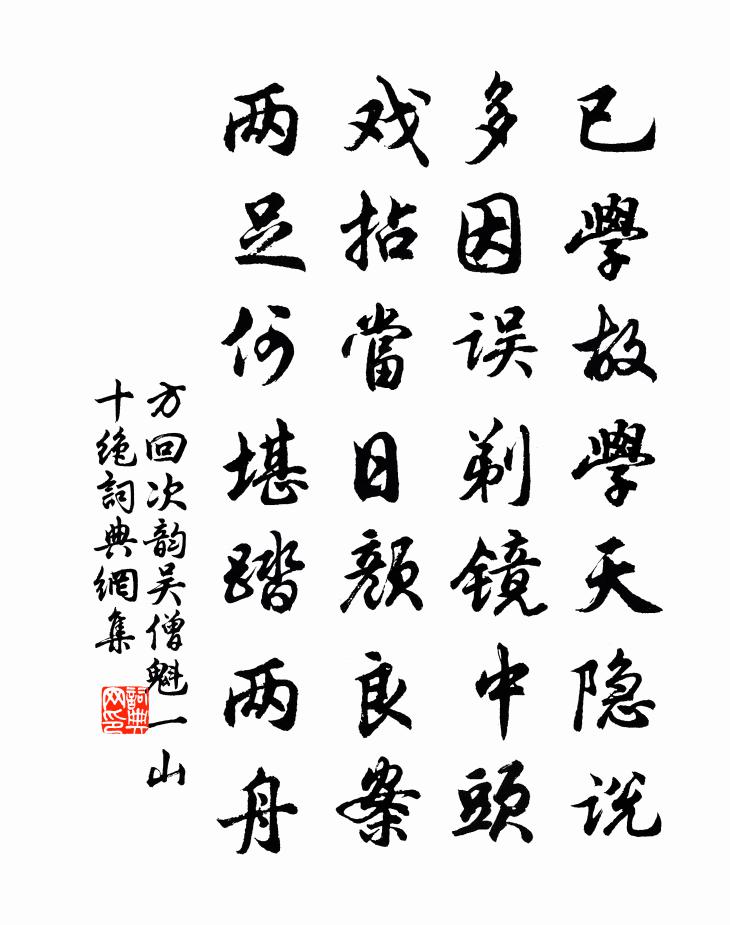 已學故學天隐说
多因误剃镜中頭
戏拈當日颜良案
两足何堪踏两舟
方回次韵吴僧魁一山
十绝詞典網集